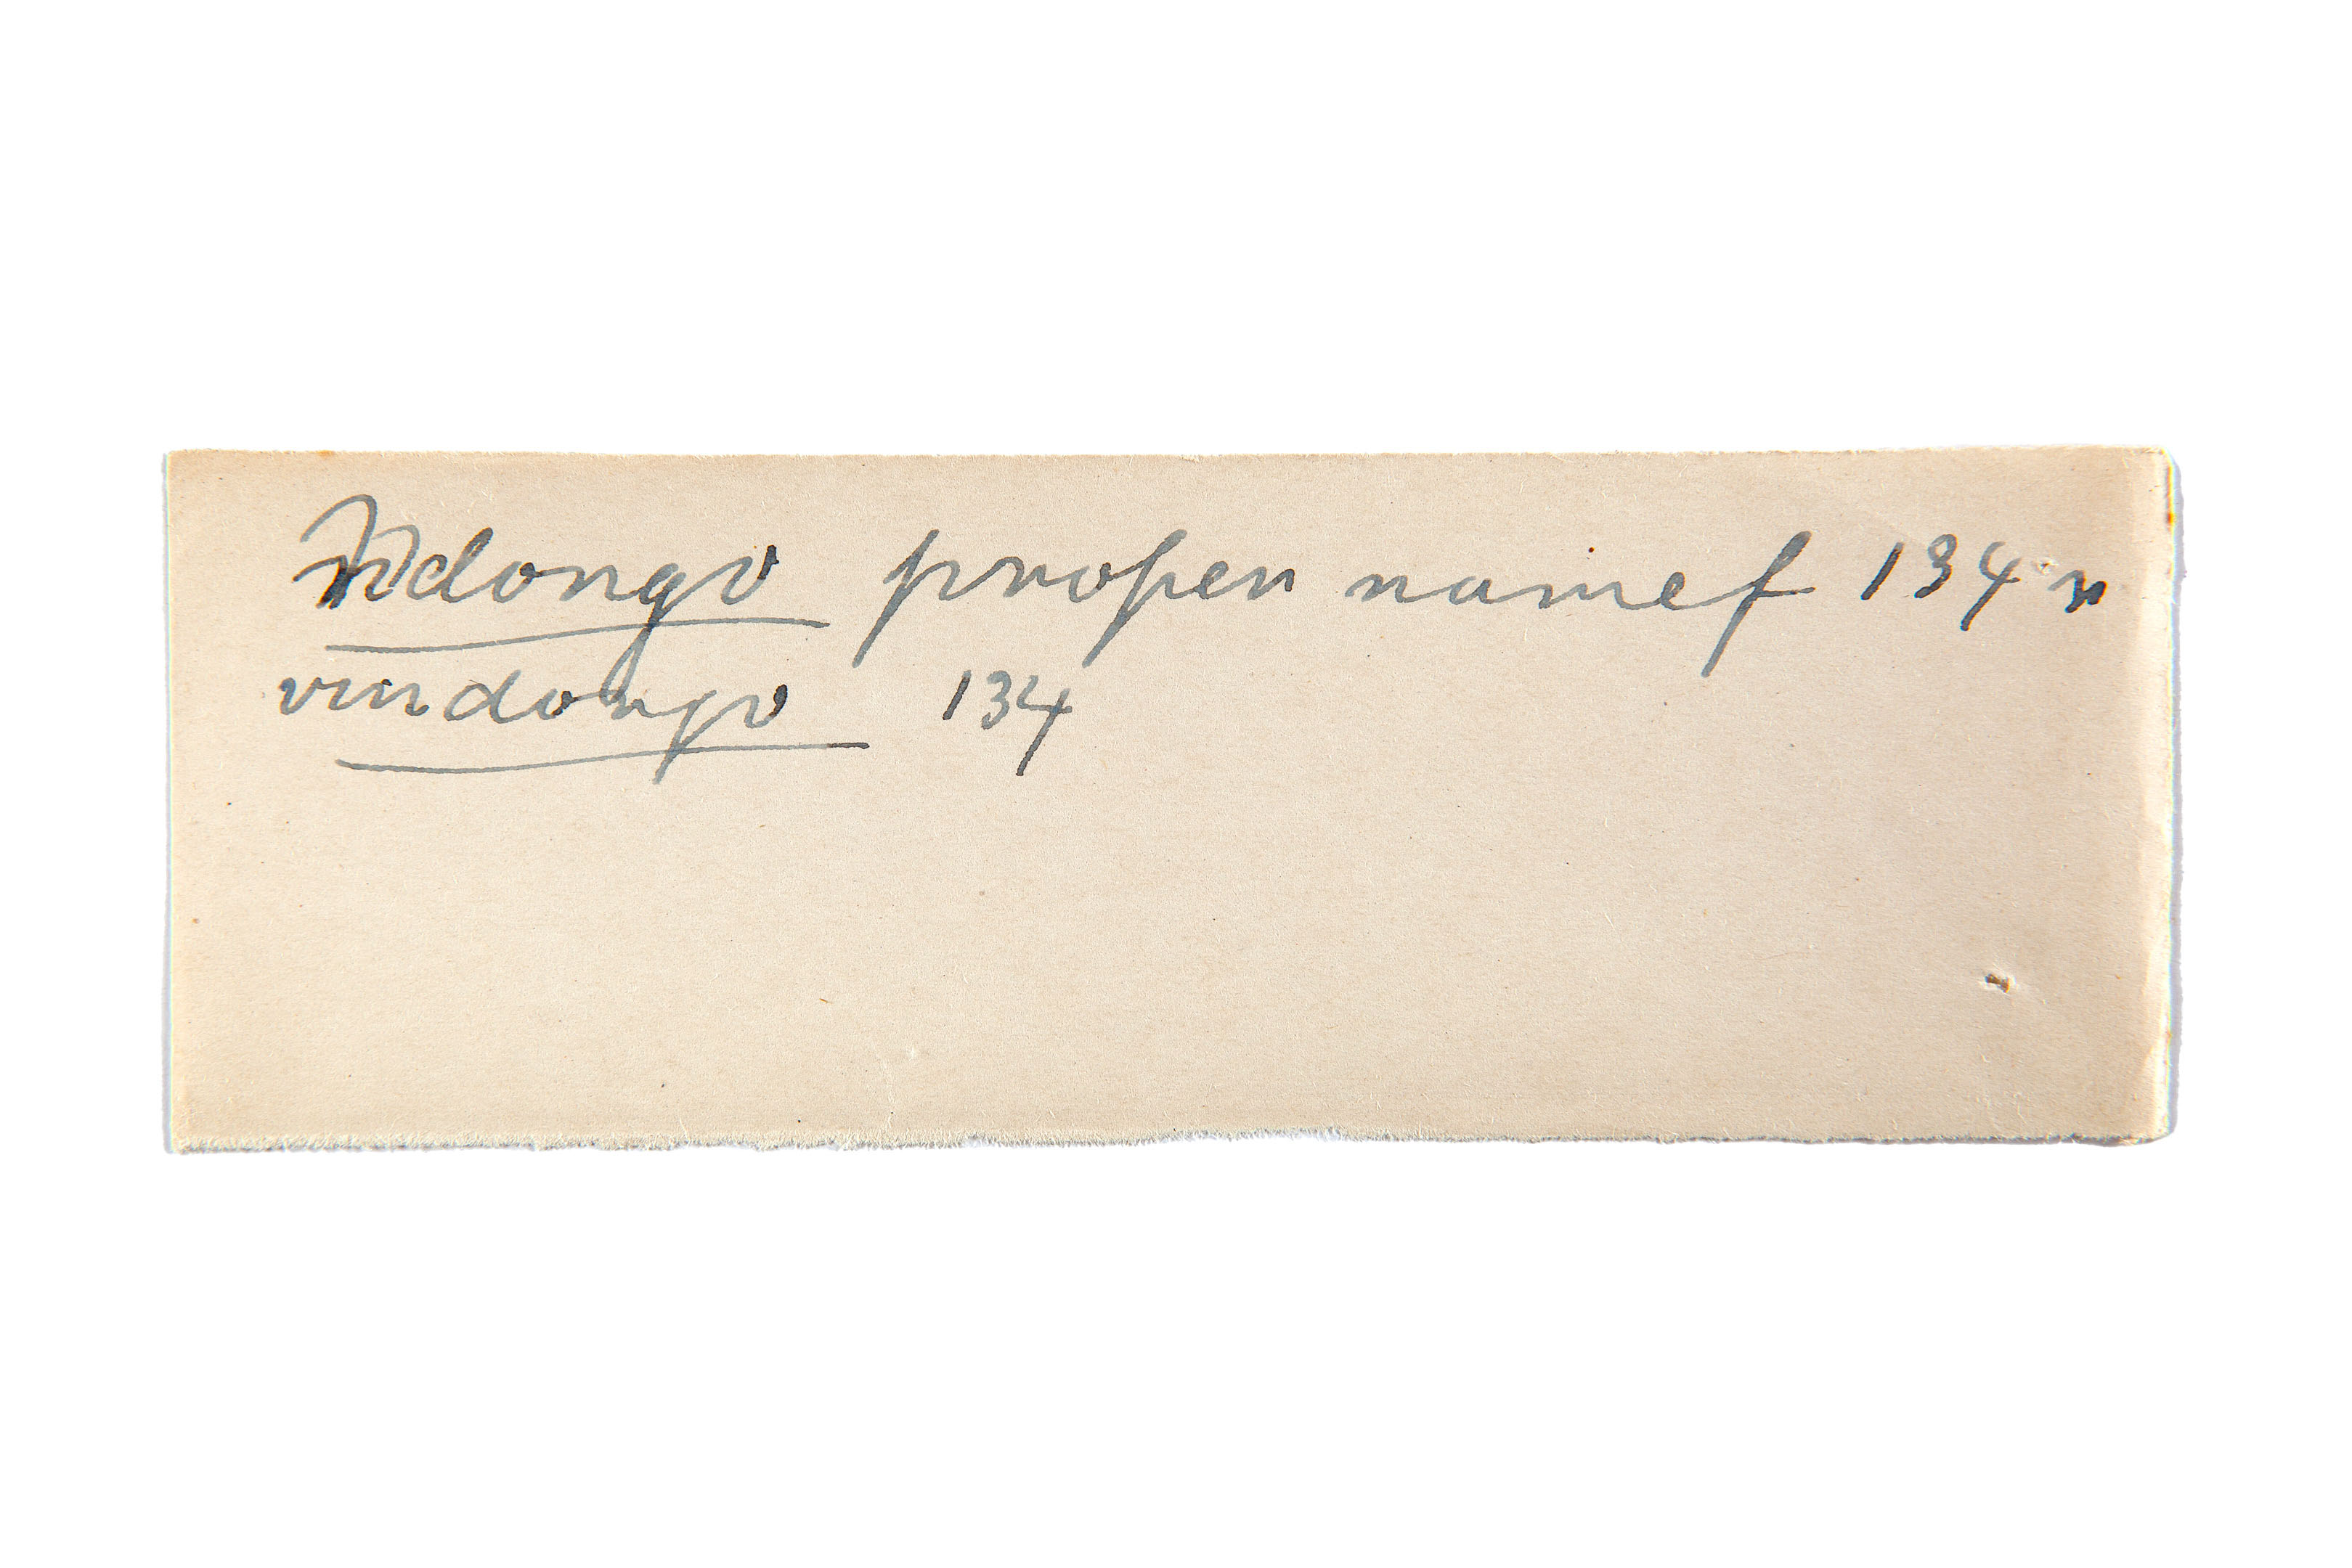 Ndongo proper name f 134 n
vindongo 134